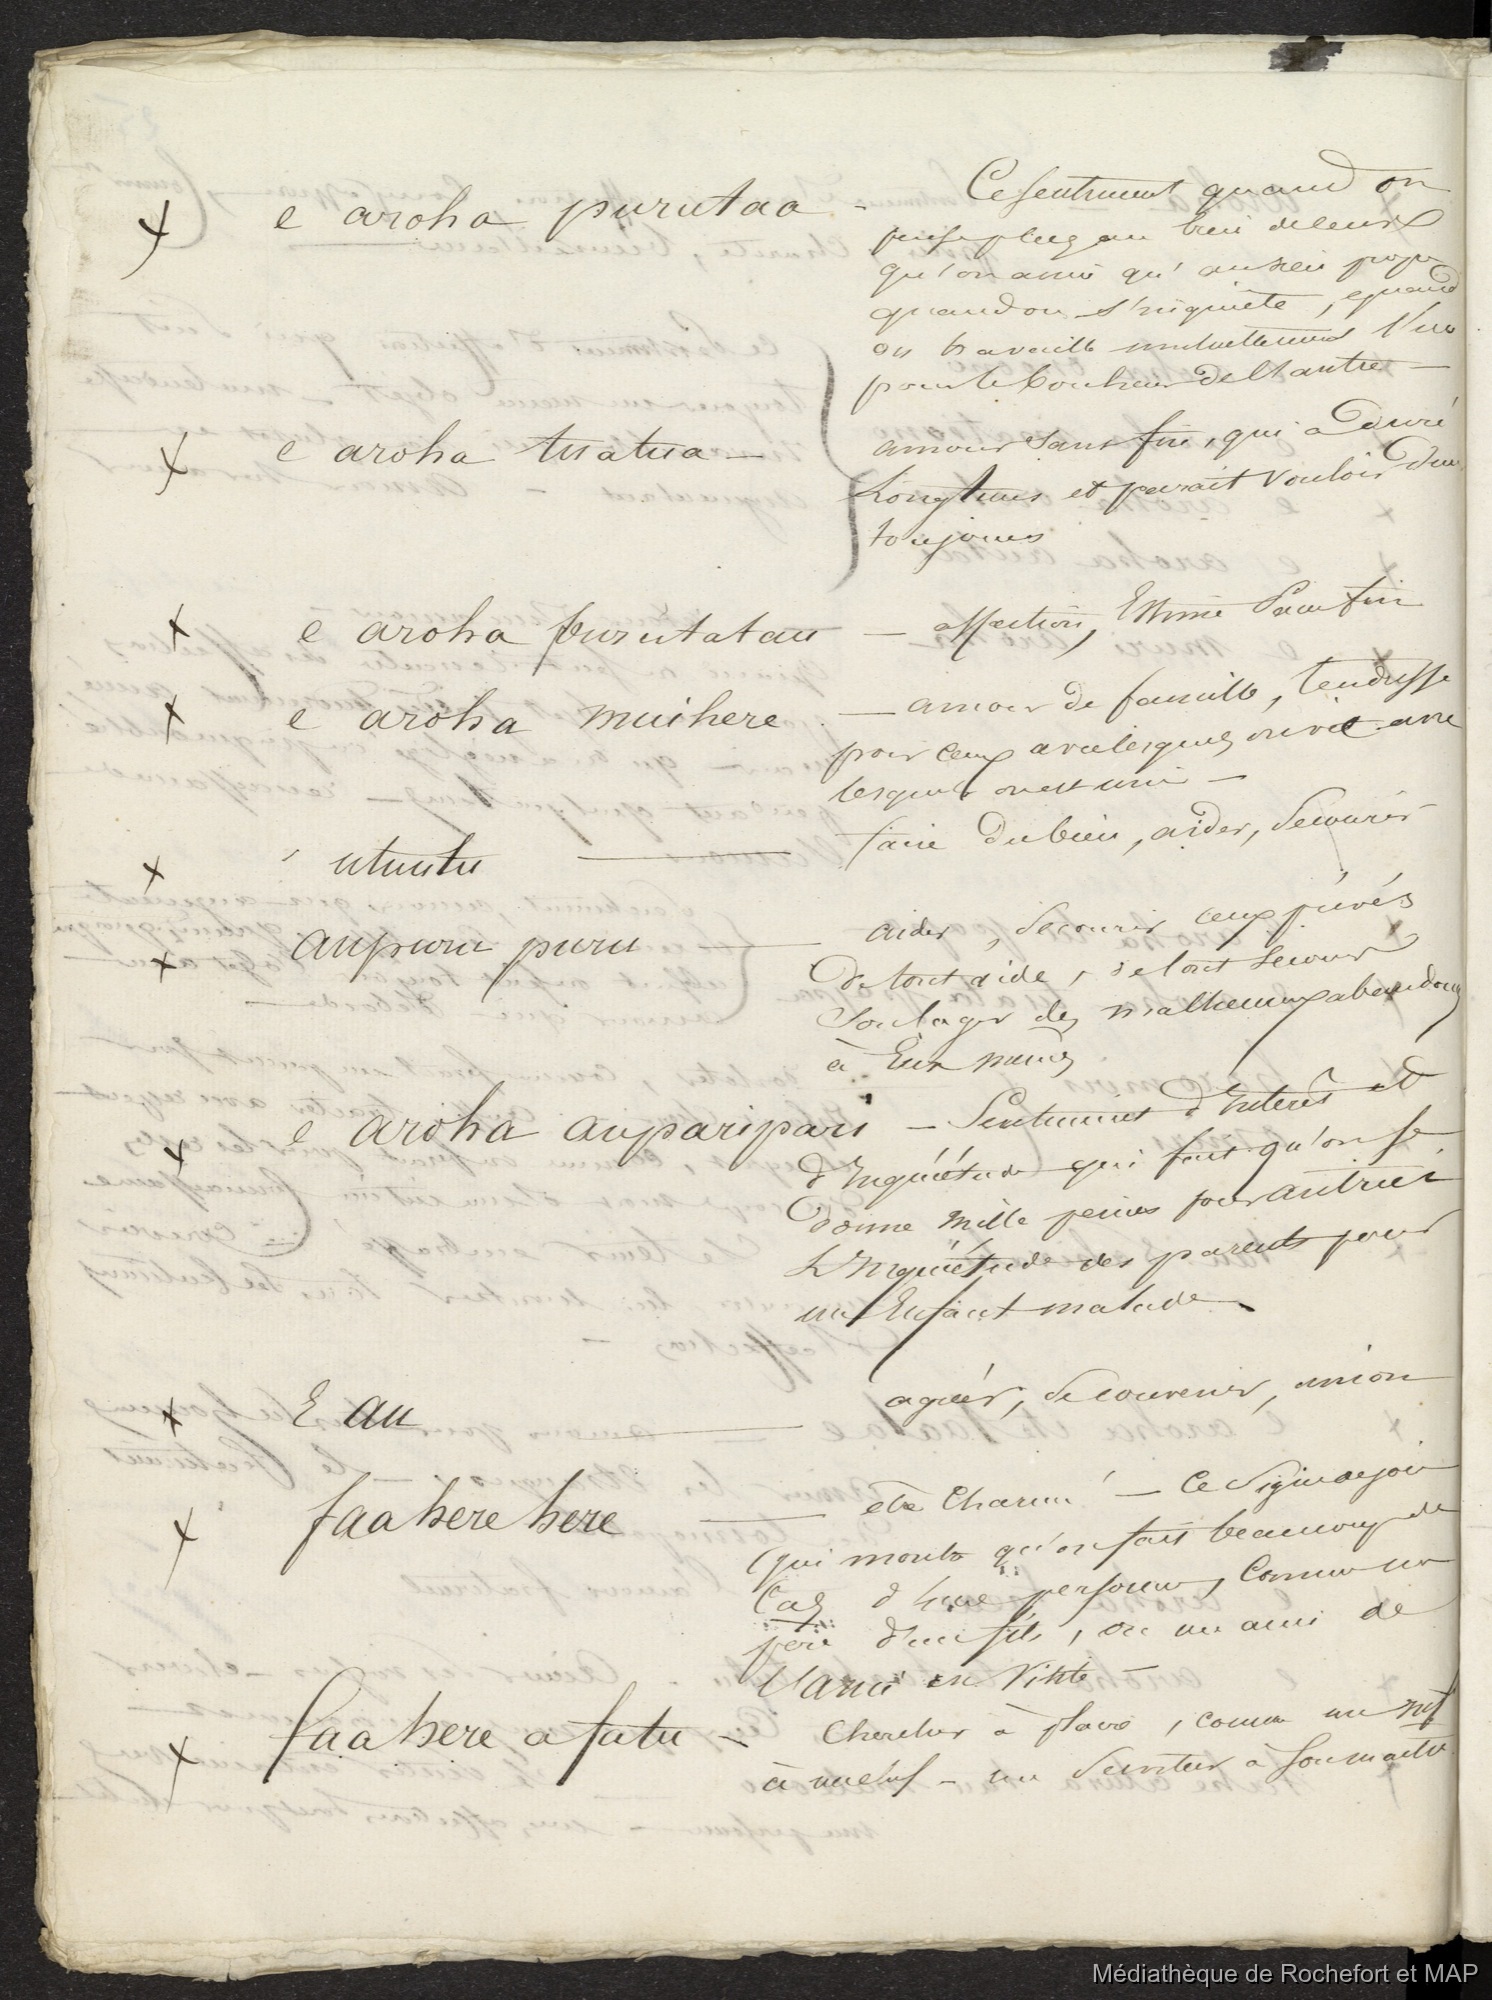 e aroha purutaa - Ce sentiment quand on
pense plus au bien de ceux
qu'on aime qu'au sien propre
quand on s'inquiète, quand
on travaille mutuellement l'un
pour le bonheur de l'autre —
e aroha tuatua — amour sans fin, qui a duré
Longtems et parait vouloir durer
toujours
e aroha purutatau — affection, Estime Sans fin
e aroha muihere — amour de famille, tendresse
pour ceux avec lesquels on vit avec
lesquels on est uni —
utuutu — faire du bien, aider, Secourir
aupuru puru — aider, Secourir ceux privés
de tout aide, de tout Secours
Soulager des malheureux abandonnés
à Eux mêmes
e aroha auparipari — Sentiment d'Interêt et
d'Inquiétude qui fait qu'on se
donne Mille peines pour autrui
L'Inquiétude des parents pour
un Enfant malade
E au — agréer, se convenir, union
faaherehere — être Charmé — Ce Signe de joie
qui montre qu'on fait beaucoup de
Cas d'une personne, Comme un
père d'un fils, ou un ami de
l'ami en visite
faahere a fatu — Chercher à plaire, comme un
à un chef — un Serviteur à Son maître
Médiathèque de Rochefort et MAP